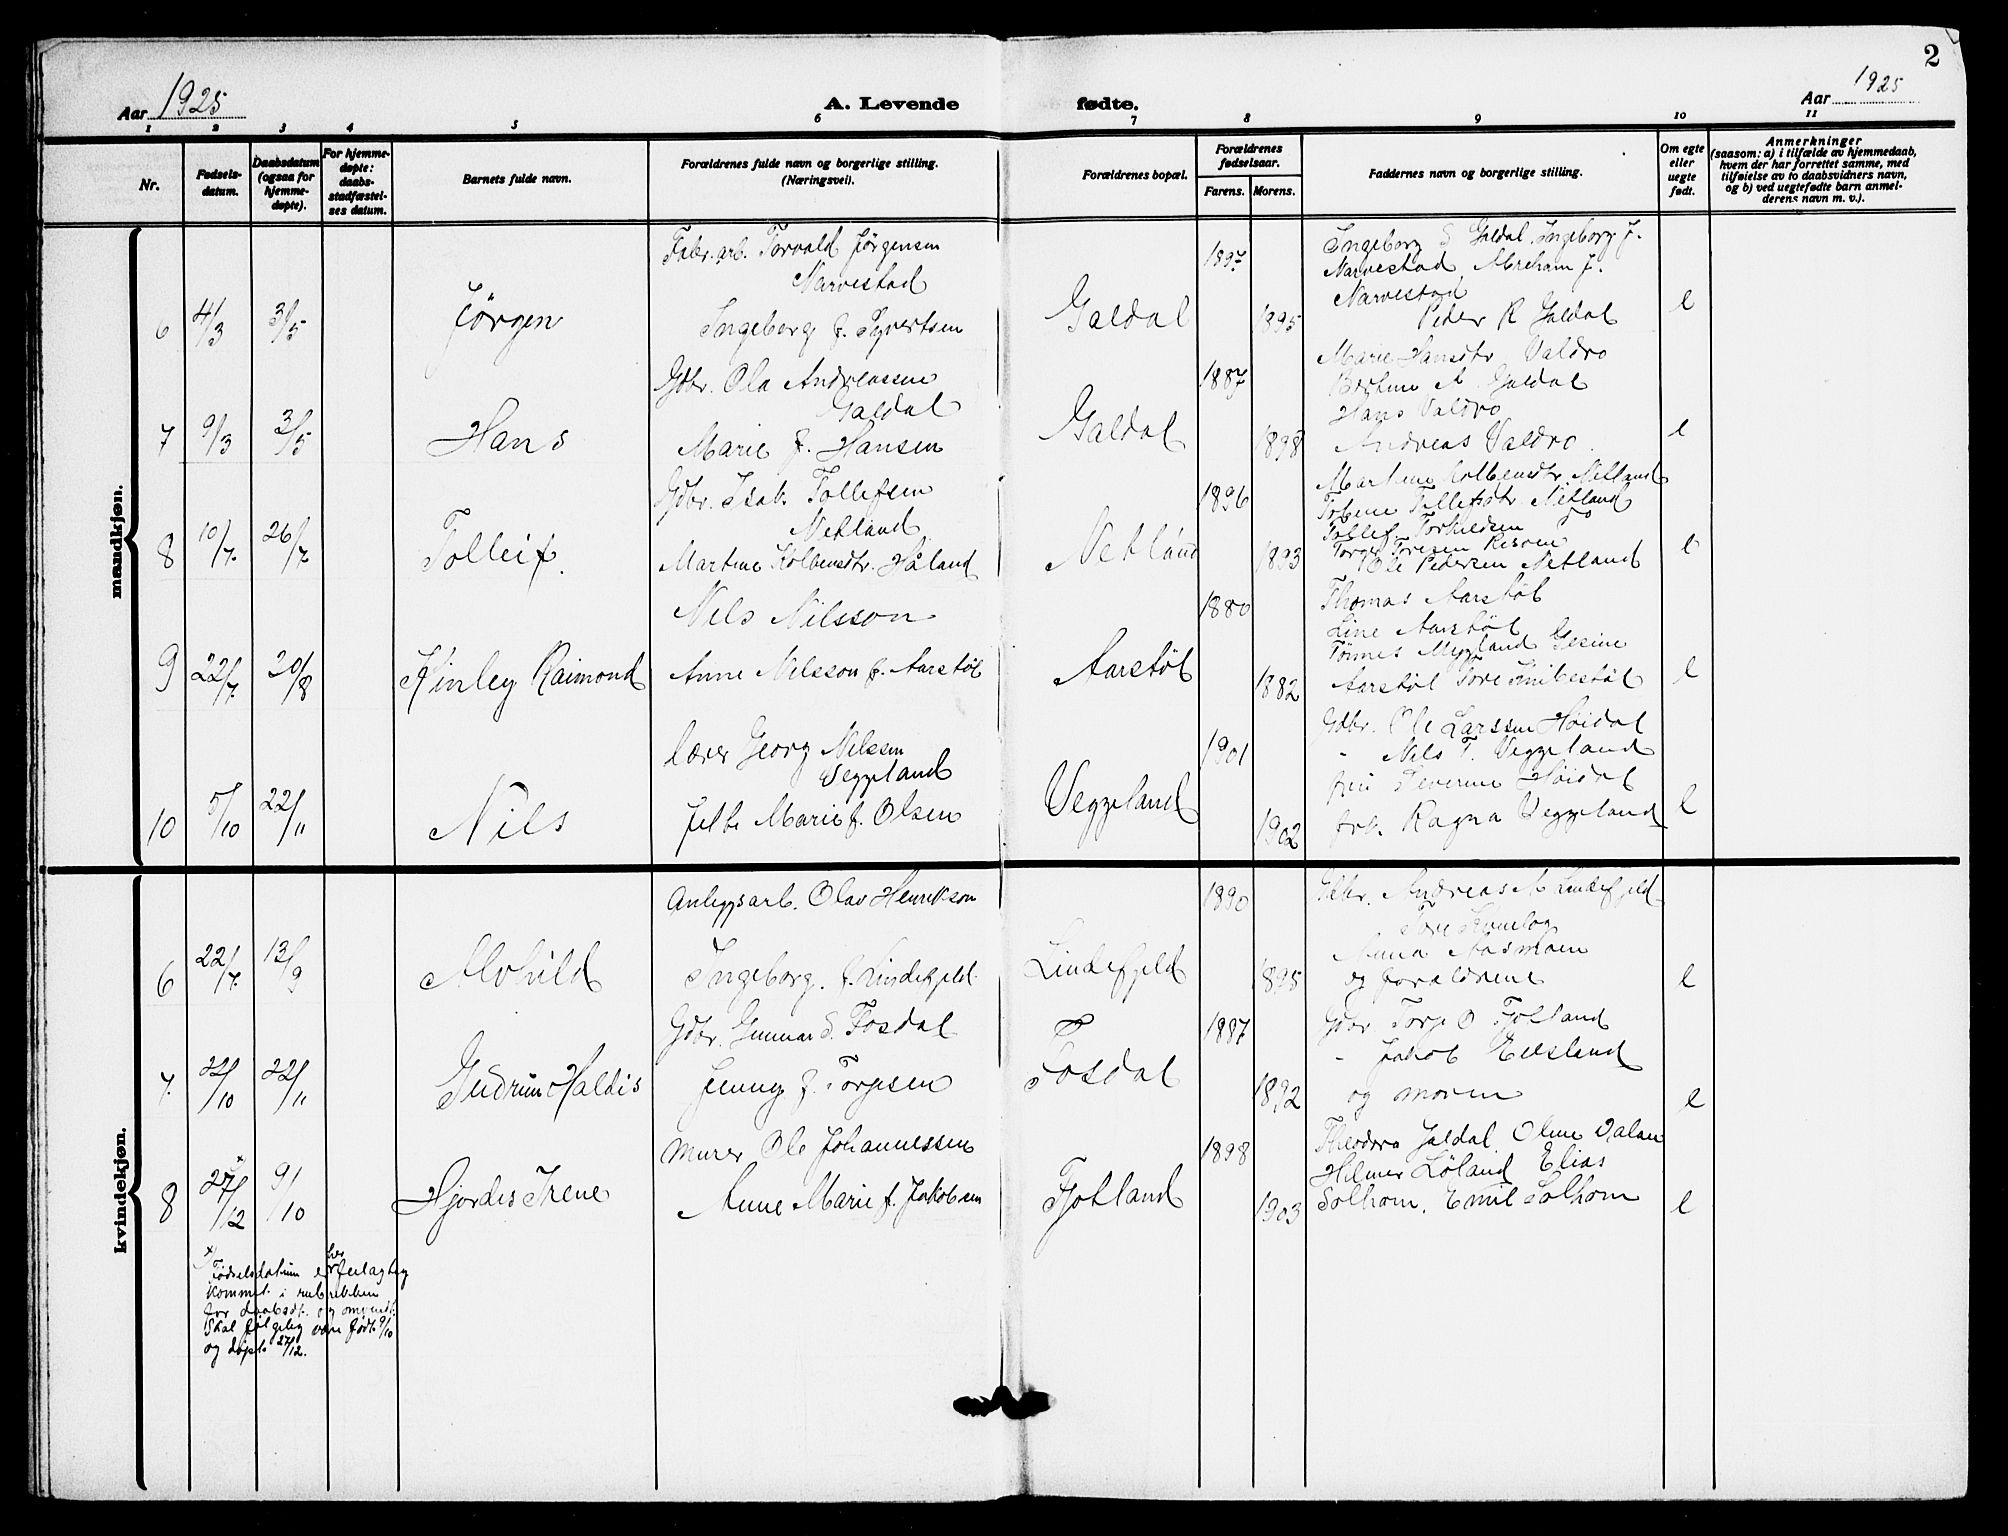 2
Aar 1925
A. Levende fødte.
Aar 1925
1 2 3 4 5 6 7 8 9 10 11
Nr.
Fødsels-
datum.
Daabsdatum
(ogsaa for
hjemme-
døpte).
For hjemme-
døpte:
daabs-
stadfæstel-
ses datum.
Barnets fulde navn.
Forældrenes fulde navn og borgerlige stilling.
(Næringsvei).
Forældrenes bopæl.
Forældrenes
fødselsaar.
Farens. Morens.
Faddernes navn og borgerlige stilling.
Om egte
eller
uegte
født.
Anmerkninger
(saasom: a) i tilfælde av hjemmedaab,
hvem der har forrettet samme, med
tilføielse av to daabsvidners navn,
og b) ved uegtefødte barn anmel-
derens navn m. v.).
mandkjøn.
6 4/3 3/5 Jörgen
Fabr. arb. Torvald Jørgensen
Narvestad
Ingeborg f. Syvertsen
Galdal 1897 1895
Ingeborg S Galdal, Ingeborg J.
Narvestad, Abreham J.
Narvestad
Peder R Galdal
e
7 9/3 3/5 Hans
Gdbr. Ola Andreassen
Galdal
Marie f. Hansen
Galdal 1887 1898
Marie Hansdtr Valdro
A. Galdal
Hans Valdro
Andreas Valdro.
e
8 10/7 26/7 Tolleif.
Gdbr. Isak Tollefsen
Netland
Martine Kolbensdtr. Håland
Netland 1896 1893
Martine Kolbensdtr. Netland
Tobine Tollefsdtr. Netland
Tollef Torkildsen do
Torger Toresen Risom
Ole Pedersen Netland
e
9 22/7 30/8 Kinley Raimond
Nels Nilsson
Anne Nilsson f. Aarstøl
Aarstøl 1880 1882
Thomas Aarstøl
Line Aarstøl
Tønnes Mygland Gesine
Aarstøl Tore
e
10 5/10 22/11 Nils
Lærer Georg Nilsen
Veggeland
Marie f. Olsen
Veggeland 1901 1902
Gdbr. Ole Larssen Høidal
" Nils T. Veggeland
fru Severine Høidal
frk. Ragna Veggeland
e
kvindekjøn.
6 22/7 13/9 Alvhild
Anleggsarb. Olav Henrikson
Ingeborg. f. Lindefjeld.
Lindefjeld 1890 1895
Gdbr. Andreas A Lindefjeld
Tore
Anna
og forældrene
e
7. 22/10 22/11 Gudrun Haldis
Gdbr. Gunnar S. Fosdal
Jenny f. Torgesen
Fosdal 1887 1892
Gdbr Torge O Fjotland
" Jakob Eilsland
og moren
e
8 27/12 x 9/10 Hjordis Irene
Murer Ole Johannessen
Anne Marie f. Jakobsen
Fjotland 1898 1903
Theodora Galdal, Oline Dalen
Hilmer Løland Elias
Solhom, Emil Solhom
e
x Fødselsdatum er her feilagtig
kommet i rubrikken
for daabsdt. og omvendt.
Skal følgelig være født 9/10
og døpt 27/12.